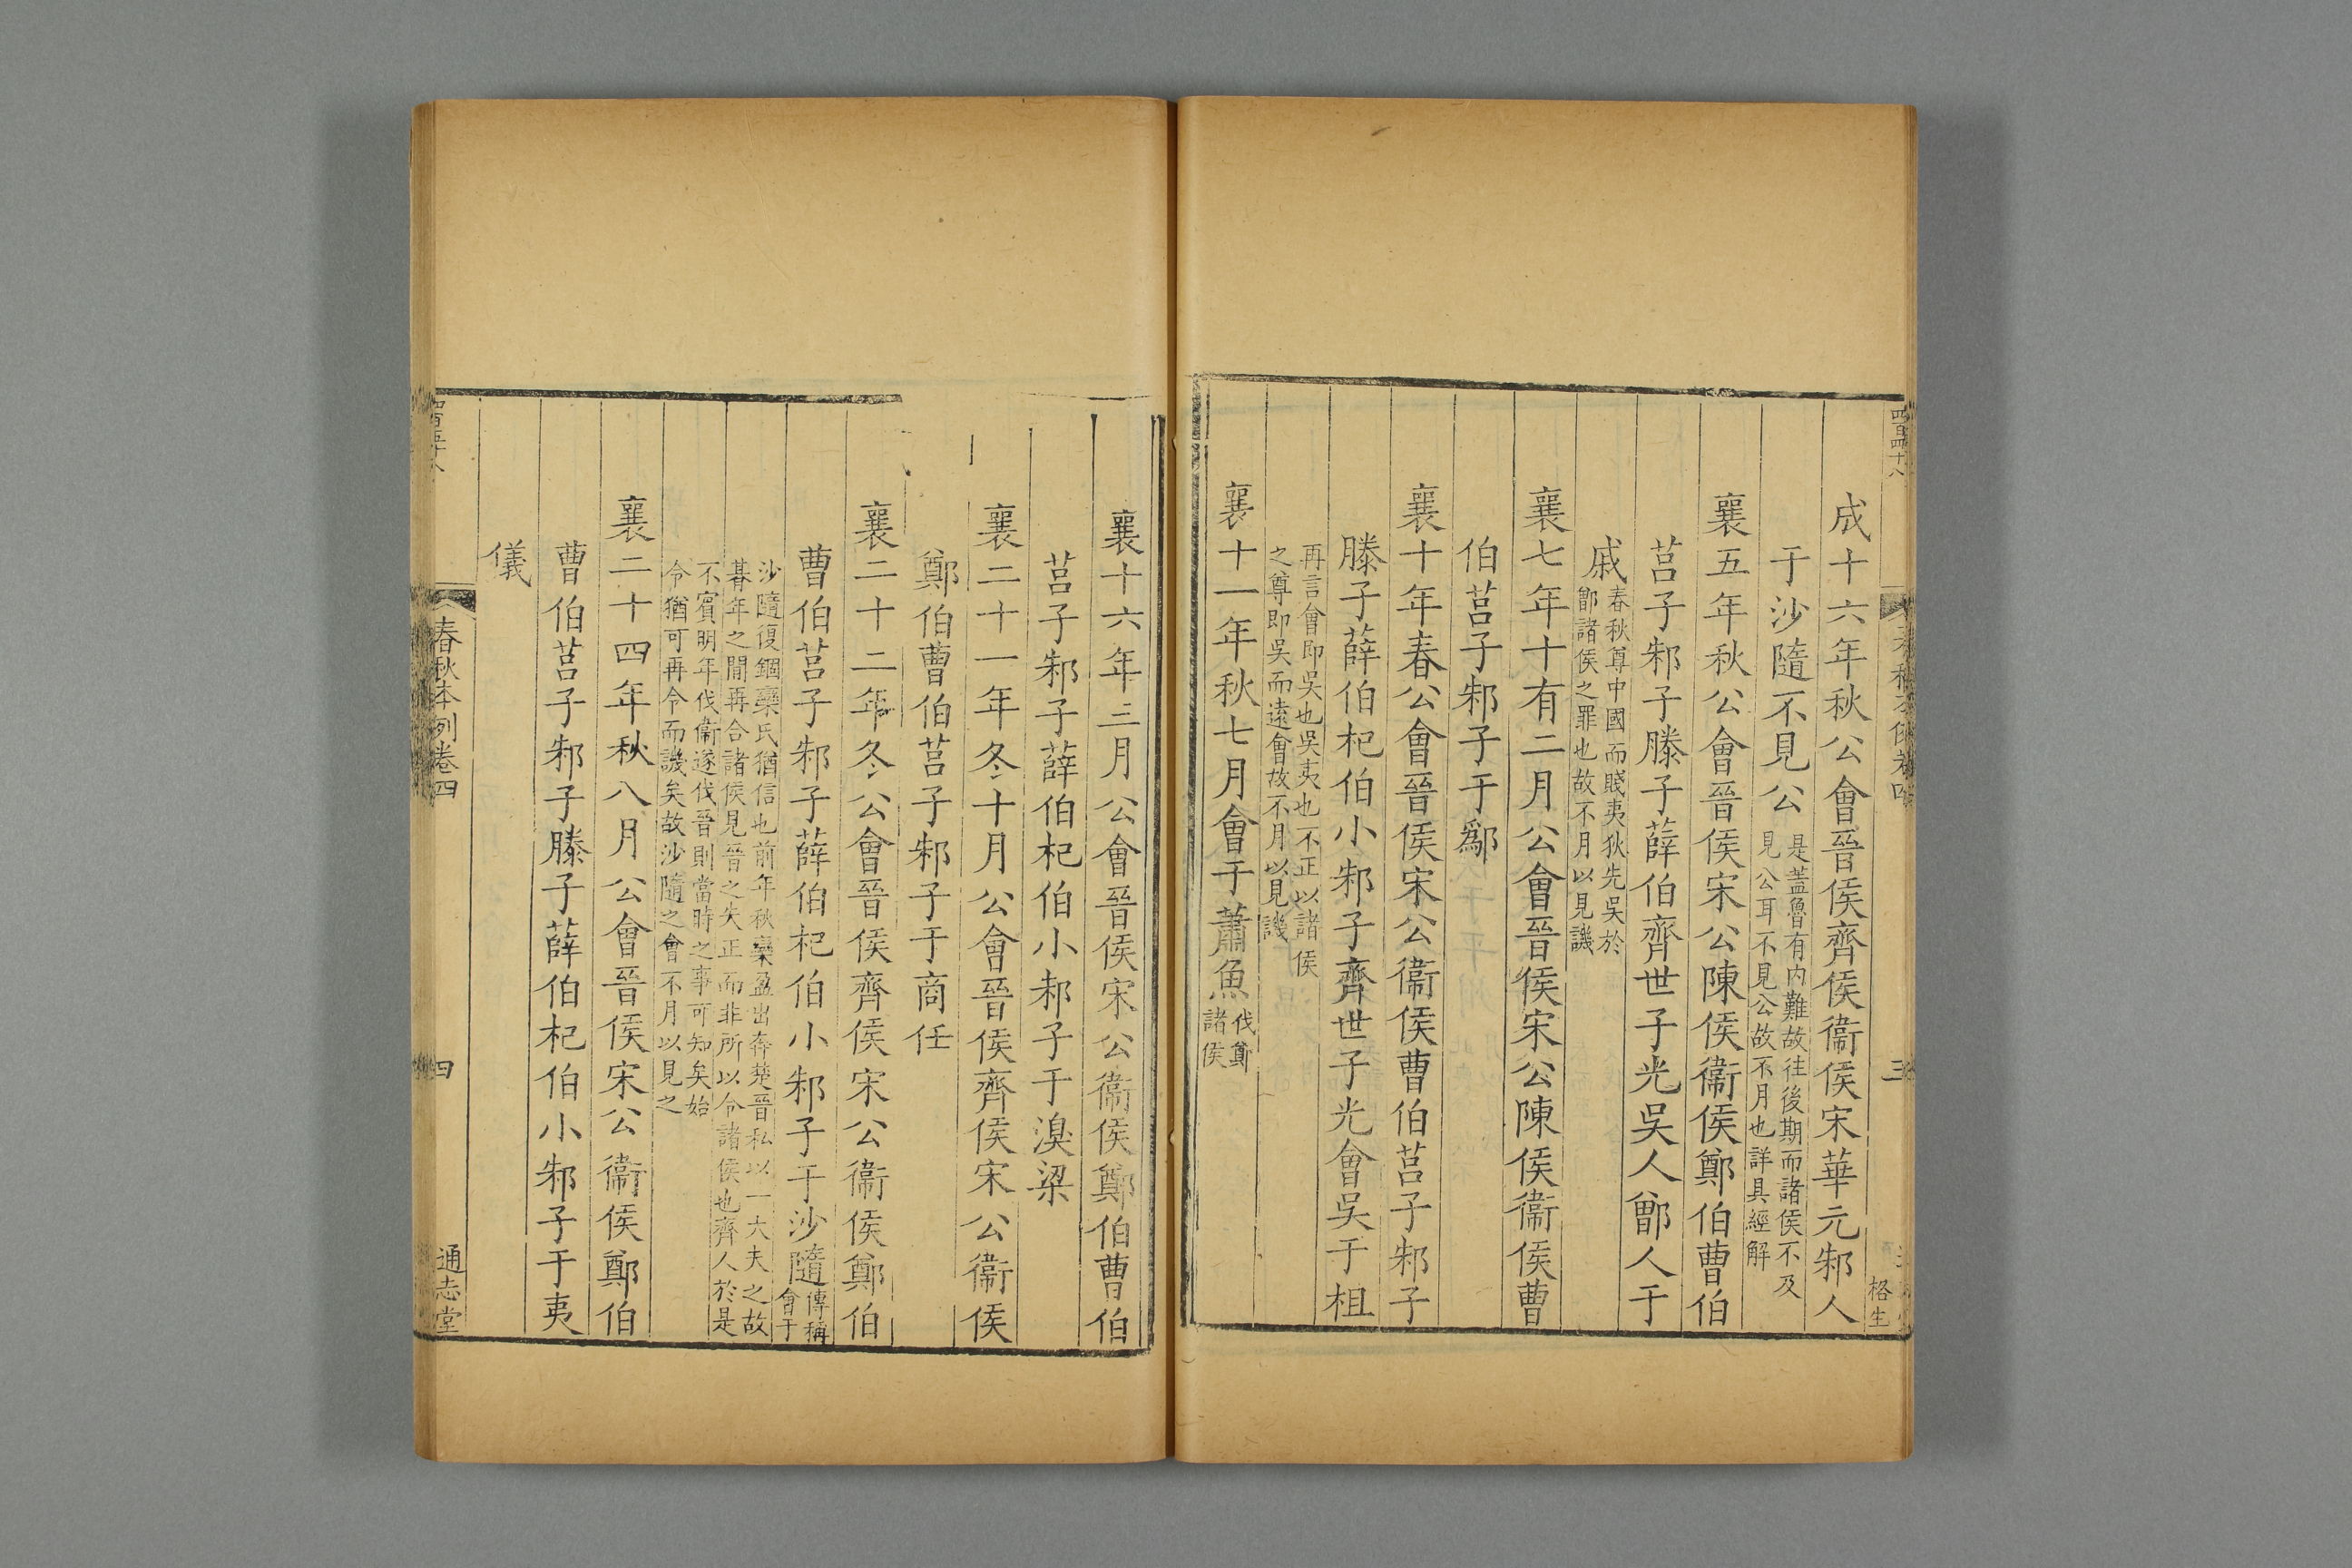 四百四十八
三
格生
成十六年秋公會晉侯齊侯衞侯宋華元邾人
于沙隨不見公
是蓋魯有内難故往後期而諸侯不及
見公耳不見公故不月也詳具經解
襄五年秋公會晉侯宋公陳侯衞侯鄭伯曹伯
莒子邾子滕子薛伯齊世子光吳人鄫人于
戚
春秋尊中國而賤夷狄先吳於
鄫諸侯之罪也故不月以見譏
襄七年十有二月公會晉侯宋公陳侯衞侯曹
伯莒子邾子于鄬
襄十年春公會晉侯宋公衞侯曹伯莒子邾子
滕子薛伯杞伯小邾子齊世子光會吳于柤
再言會即吳也吳夷也不正以諸侯
之尊即吳而遠會故不月以見譏
襄十一年秋七月會于蕭魚
伐鄭
諸侯
襄十六年三月公會晉侯宋公衞侯鄭伯曹伯
莒子邾子薛伯杞伯小邾子于湨梁
襄二十一年冬十月公會晉侯齊侯宋公衞侯
鄭伯曹伯莒子邾子于商任
襄二十二年冬公會晉侯齊侯宋公衞侯鄭伯
曹伯莒子邾子薛伯杞伯小邾子于沙隨
傳稱
會于
沙隨復錮欒氏猶信也前年秋欒盈出奔楚晉私以一大夫之故
朞年之間再合諸侯見晉之失正而非所以令諸侯也齊人於是
不賓明年伐衞遂伐晉則當時之事可知矣始
令猶可再令而譏矣故沙隨之會不月以見之
襄二十四年秋八月公會晉侯宋公衞侯鄭伯
曹伯莒子邾子滕子薛伯杞伯小邾子于夷
儀
春秋本例卷四
四
通志堂